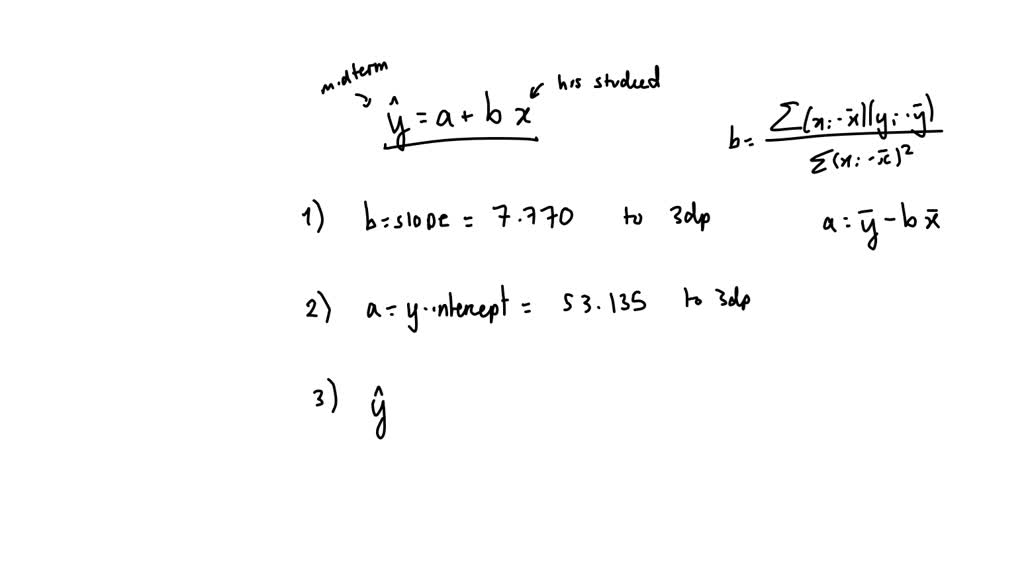 midterm
hrs studied
ŷ = a + b x
b = Σ(xᵢ - x̄)(yᵢ - ȳ) / Σ(xᵢ - x̄)²
1) b = slope = 7.770 to 3dp
a = ȳ - b x̄
2) a = y-intercept = 53.135 to 3dp
3) ŷ